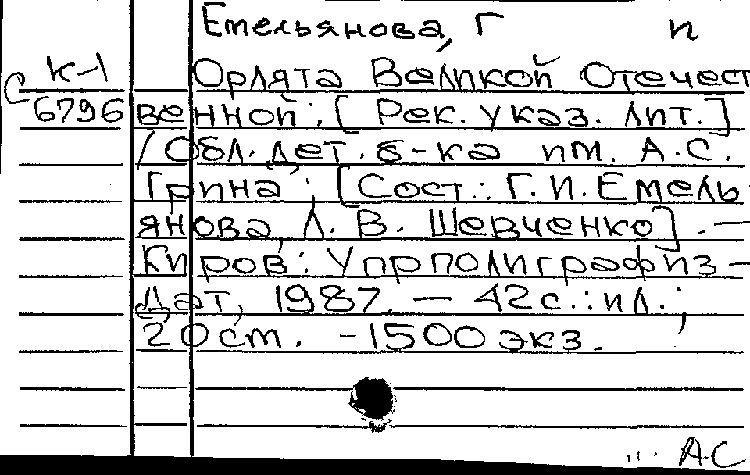 Емельянова, Г и
К-1 Орлята Великой Отечест
С 6796 венной: [Рек. указ. лит.]
/ Обл. дет. б-ка им. А.С.
Грина; [Сост.: Г.И. Емель
янова, Л.В. Шевченко]. —
Киров: Упрполиграфиз-
дат, 1987. — 42 с.: ил.;
20 см. - 1500 экз.
АС